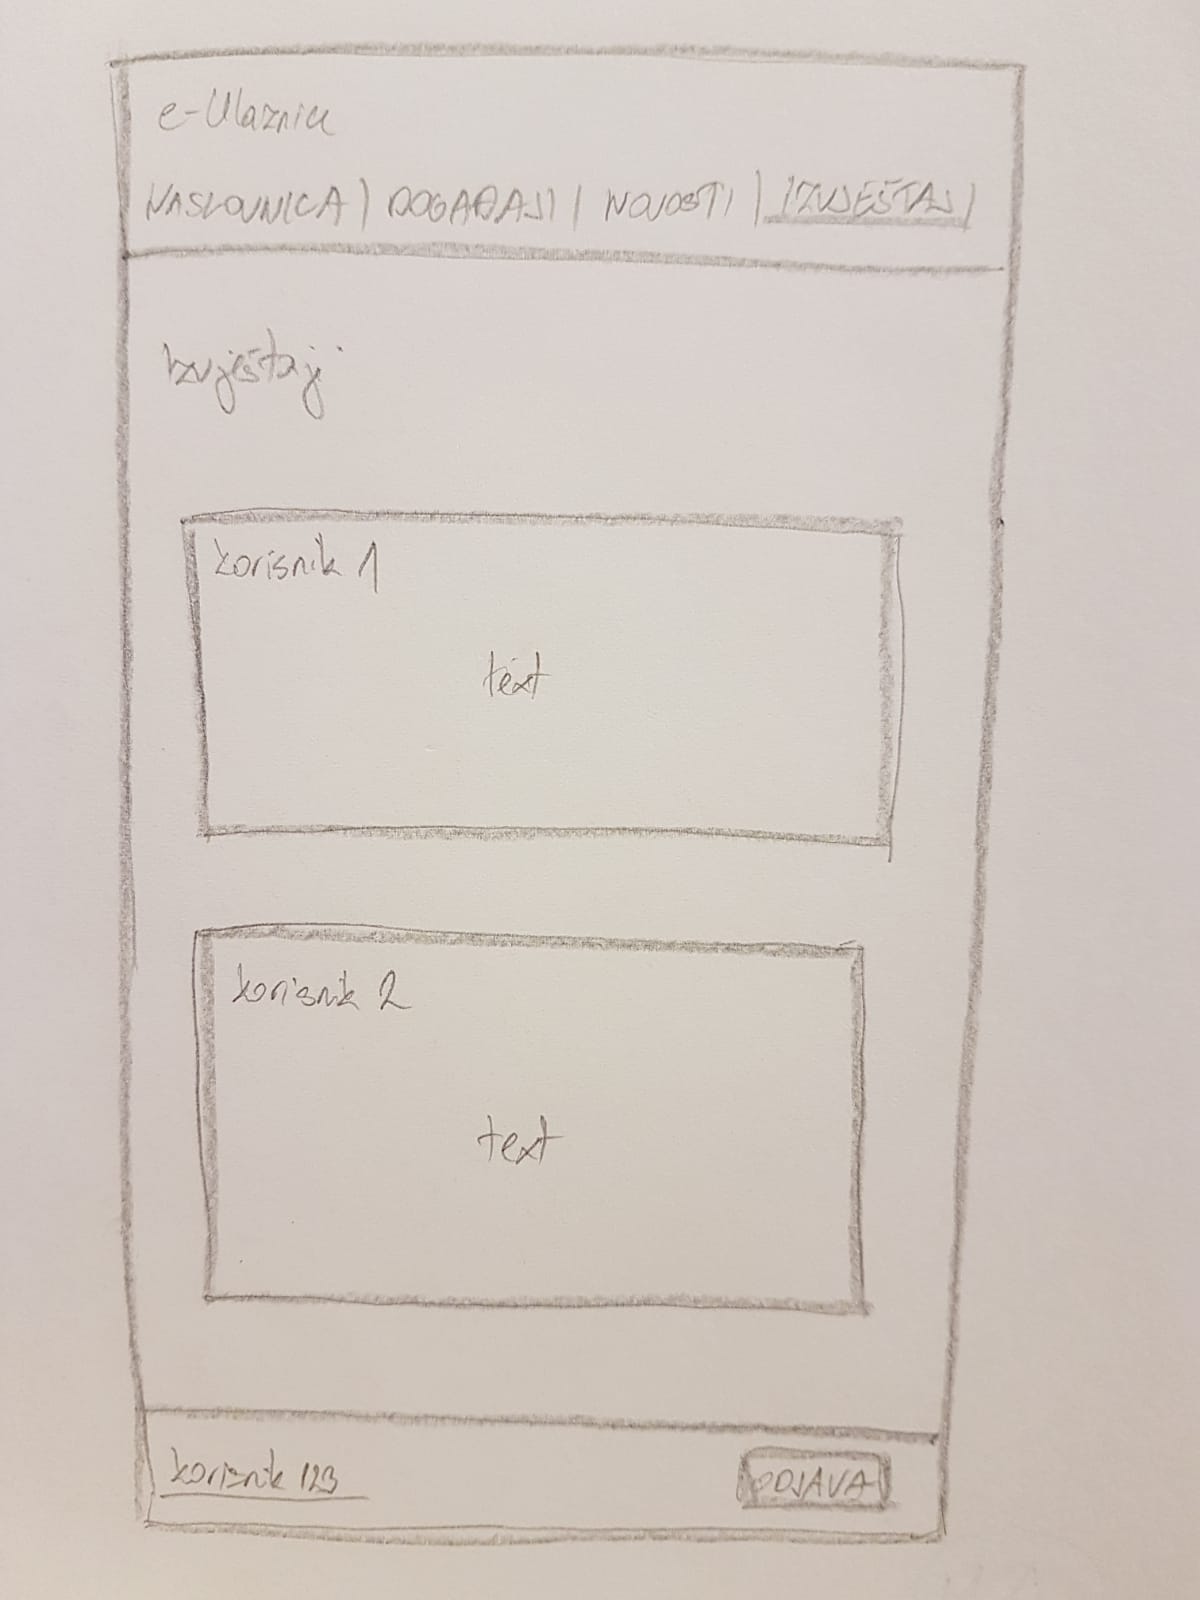 e-Ulaznice
NASLOVNICA | DOGAĐAJI | NOVOSTI | IZVJEŠTAJ |
Izvještaji
korisnik 1
text
korisnik 2
text
korisnik 123
ODJAVA